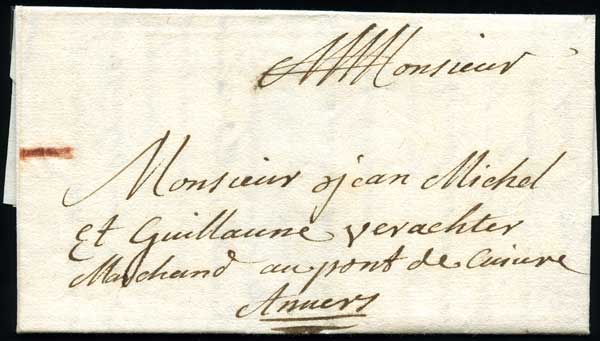 Monsieur
Monsieur jean Michel
Et Guillaume verachter
Marchand au pont de Cuivre
Anvers